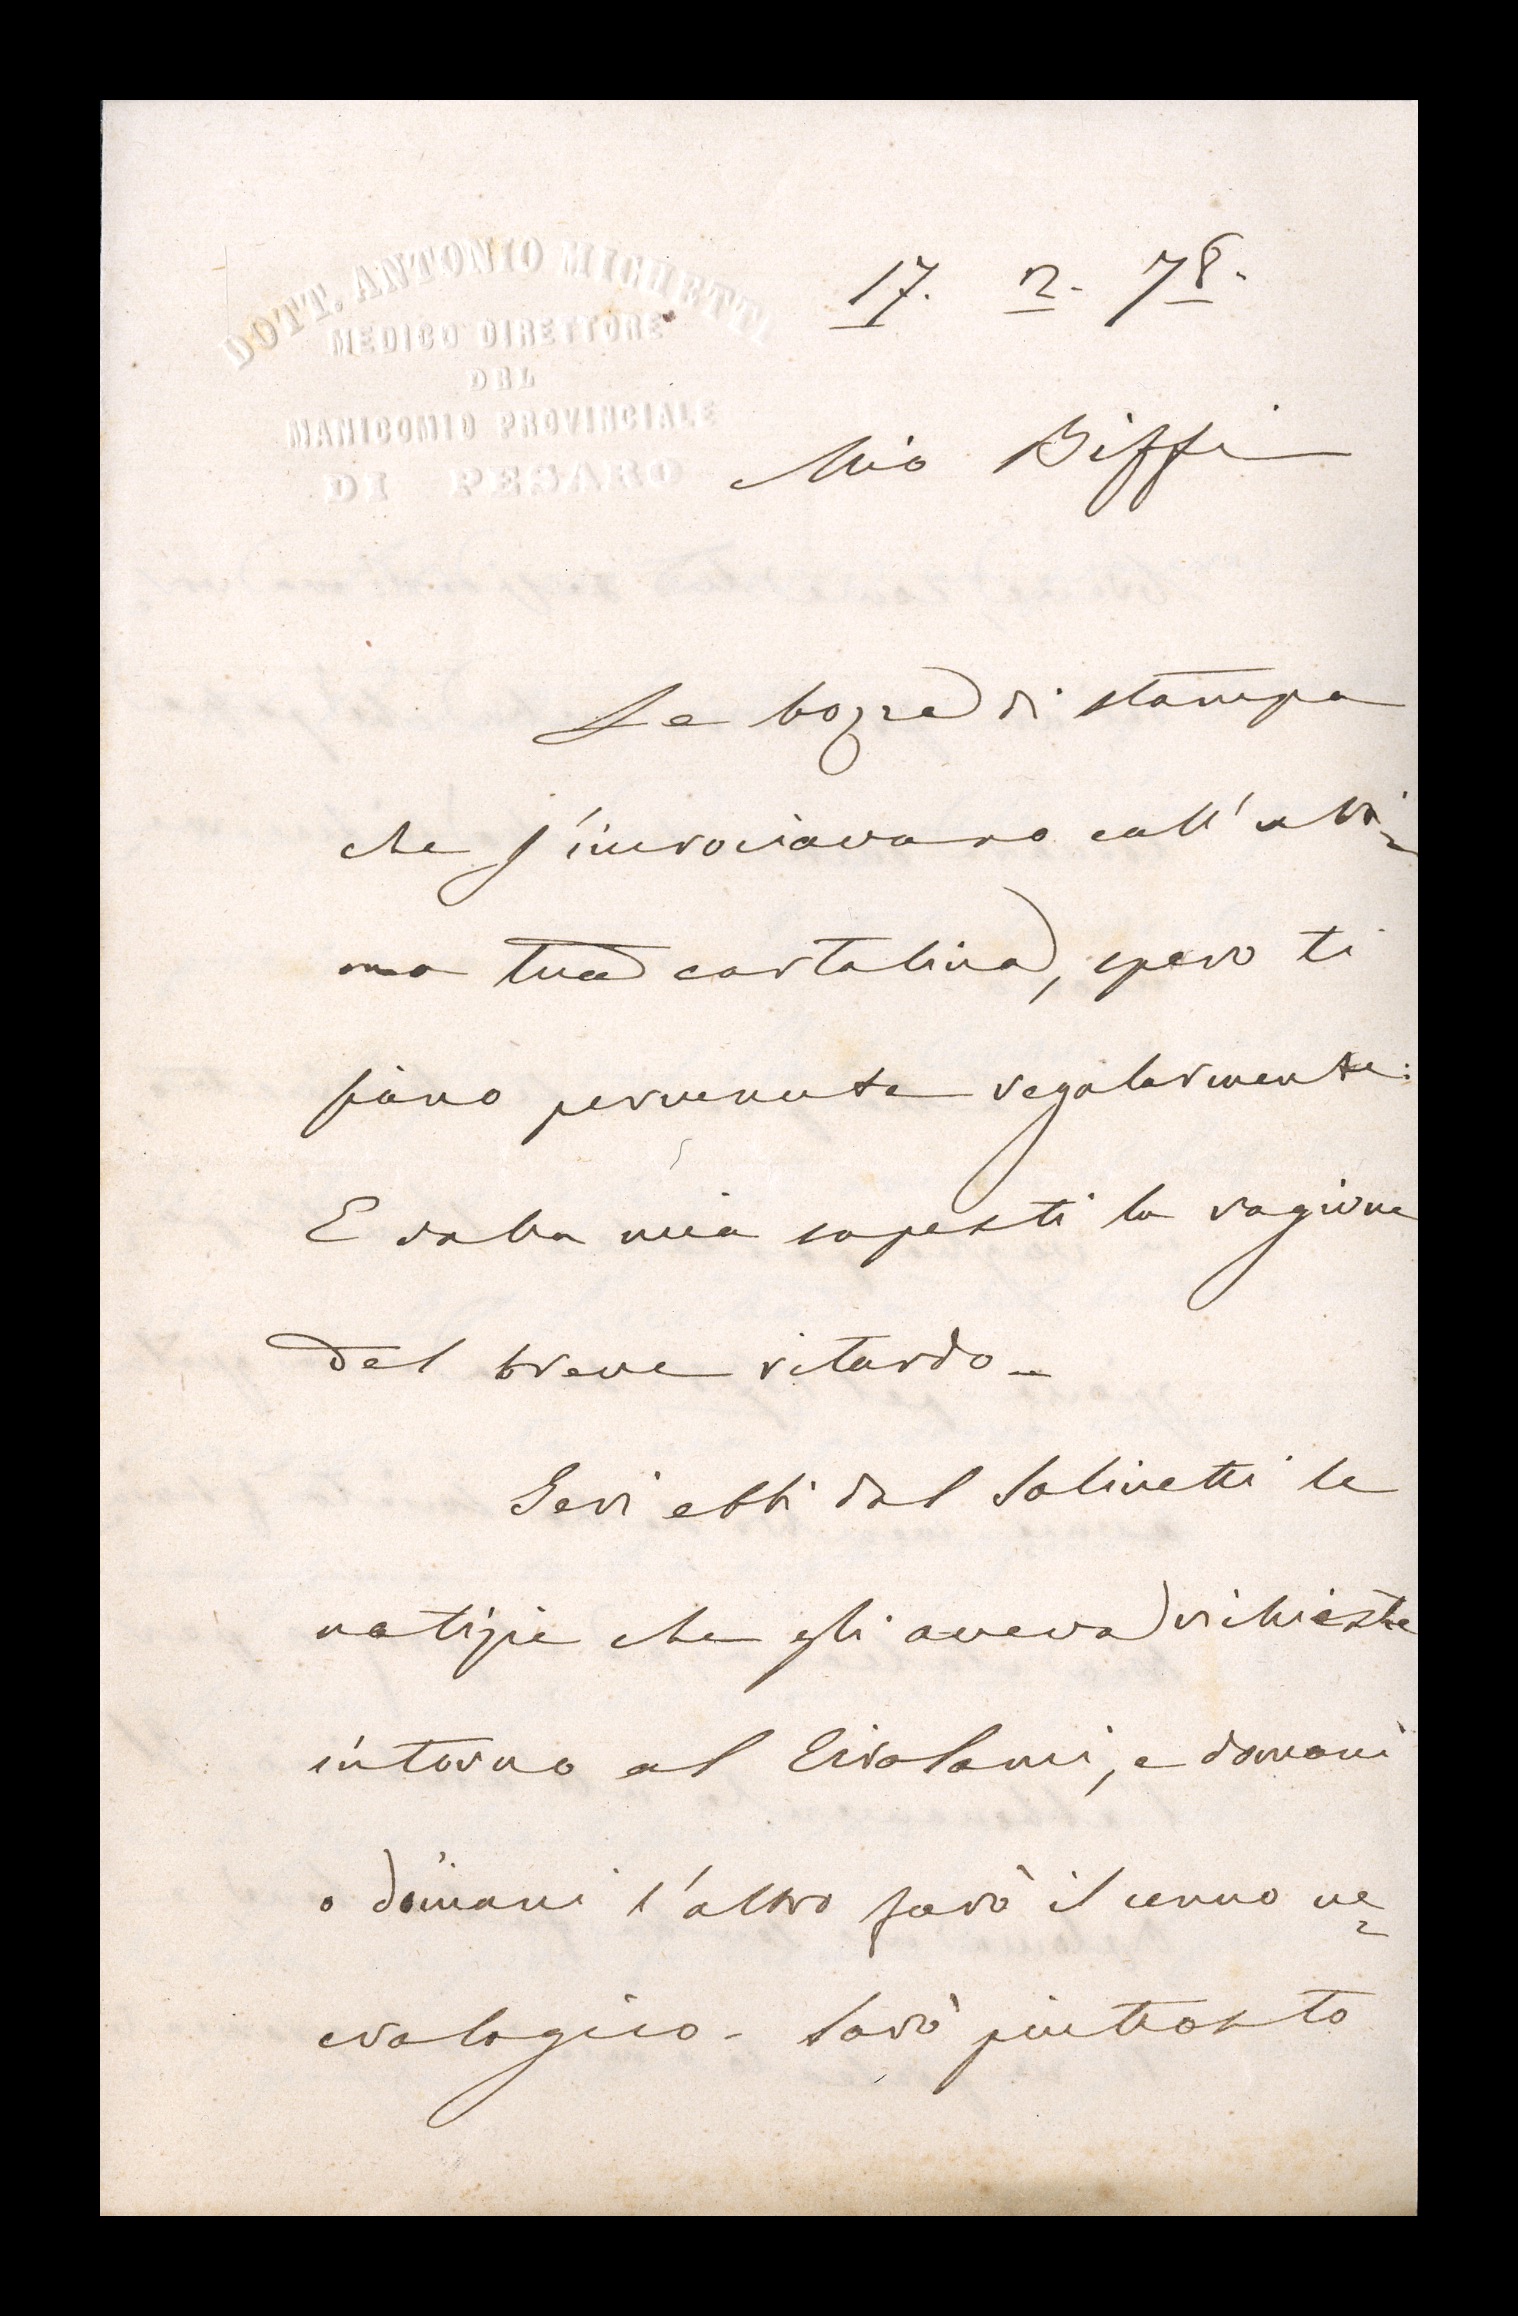 DOTT. ANTONIO MICHETTI
MEDICO DIRETTORE
DEL
MANICOMIO PROVINCIALE
DI PESARO
17. 2. 78.
Mio Biffi
Le bozze di stampa
che s'incrociavano coll'ulti=
ma tua cartolina, spero ti
siano pervenute regolarmente.
E dalla mia sapesti la ragione
del breve ritardo_
Ieri ebbi dal Solivetti le
notizie che gli aveva richieste
intorno al Girolami, e domani
o domani l'altro farò il cenno ne=
crologico - Sarò piuttosto